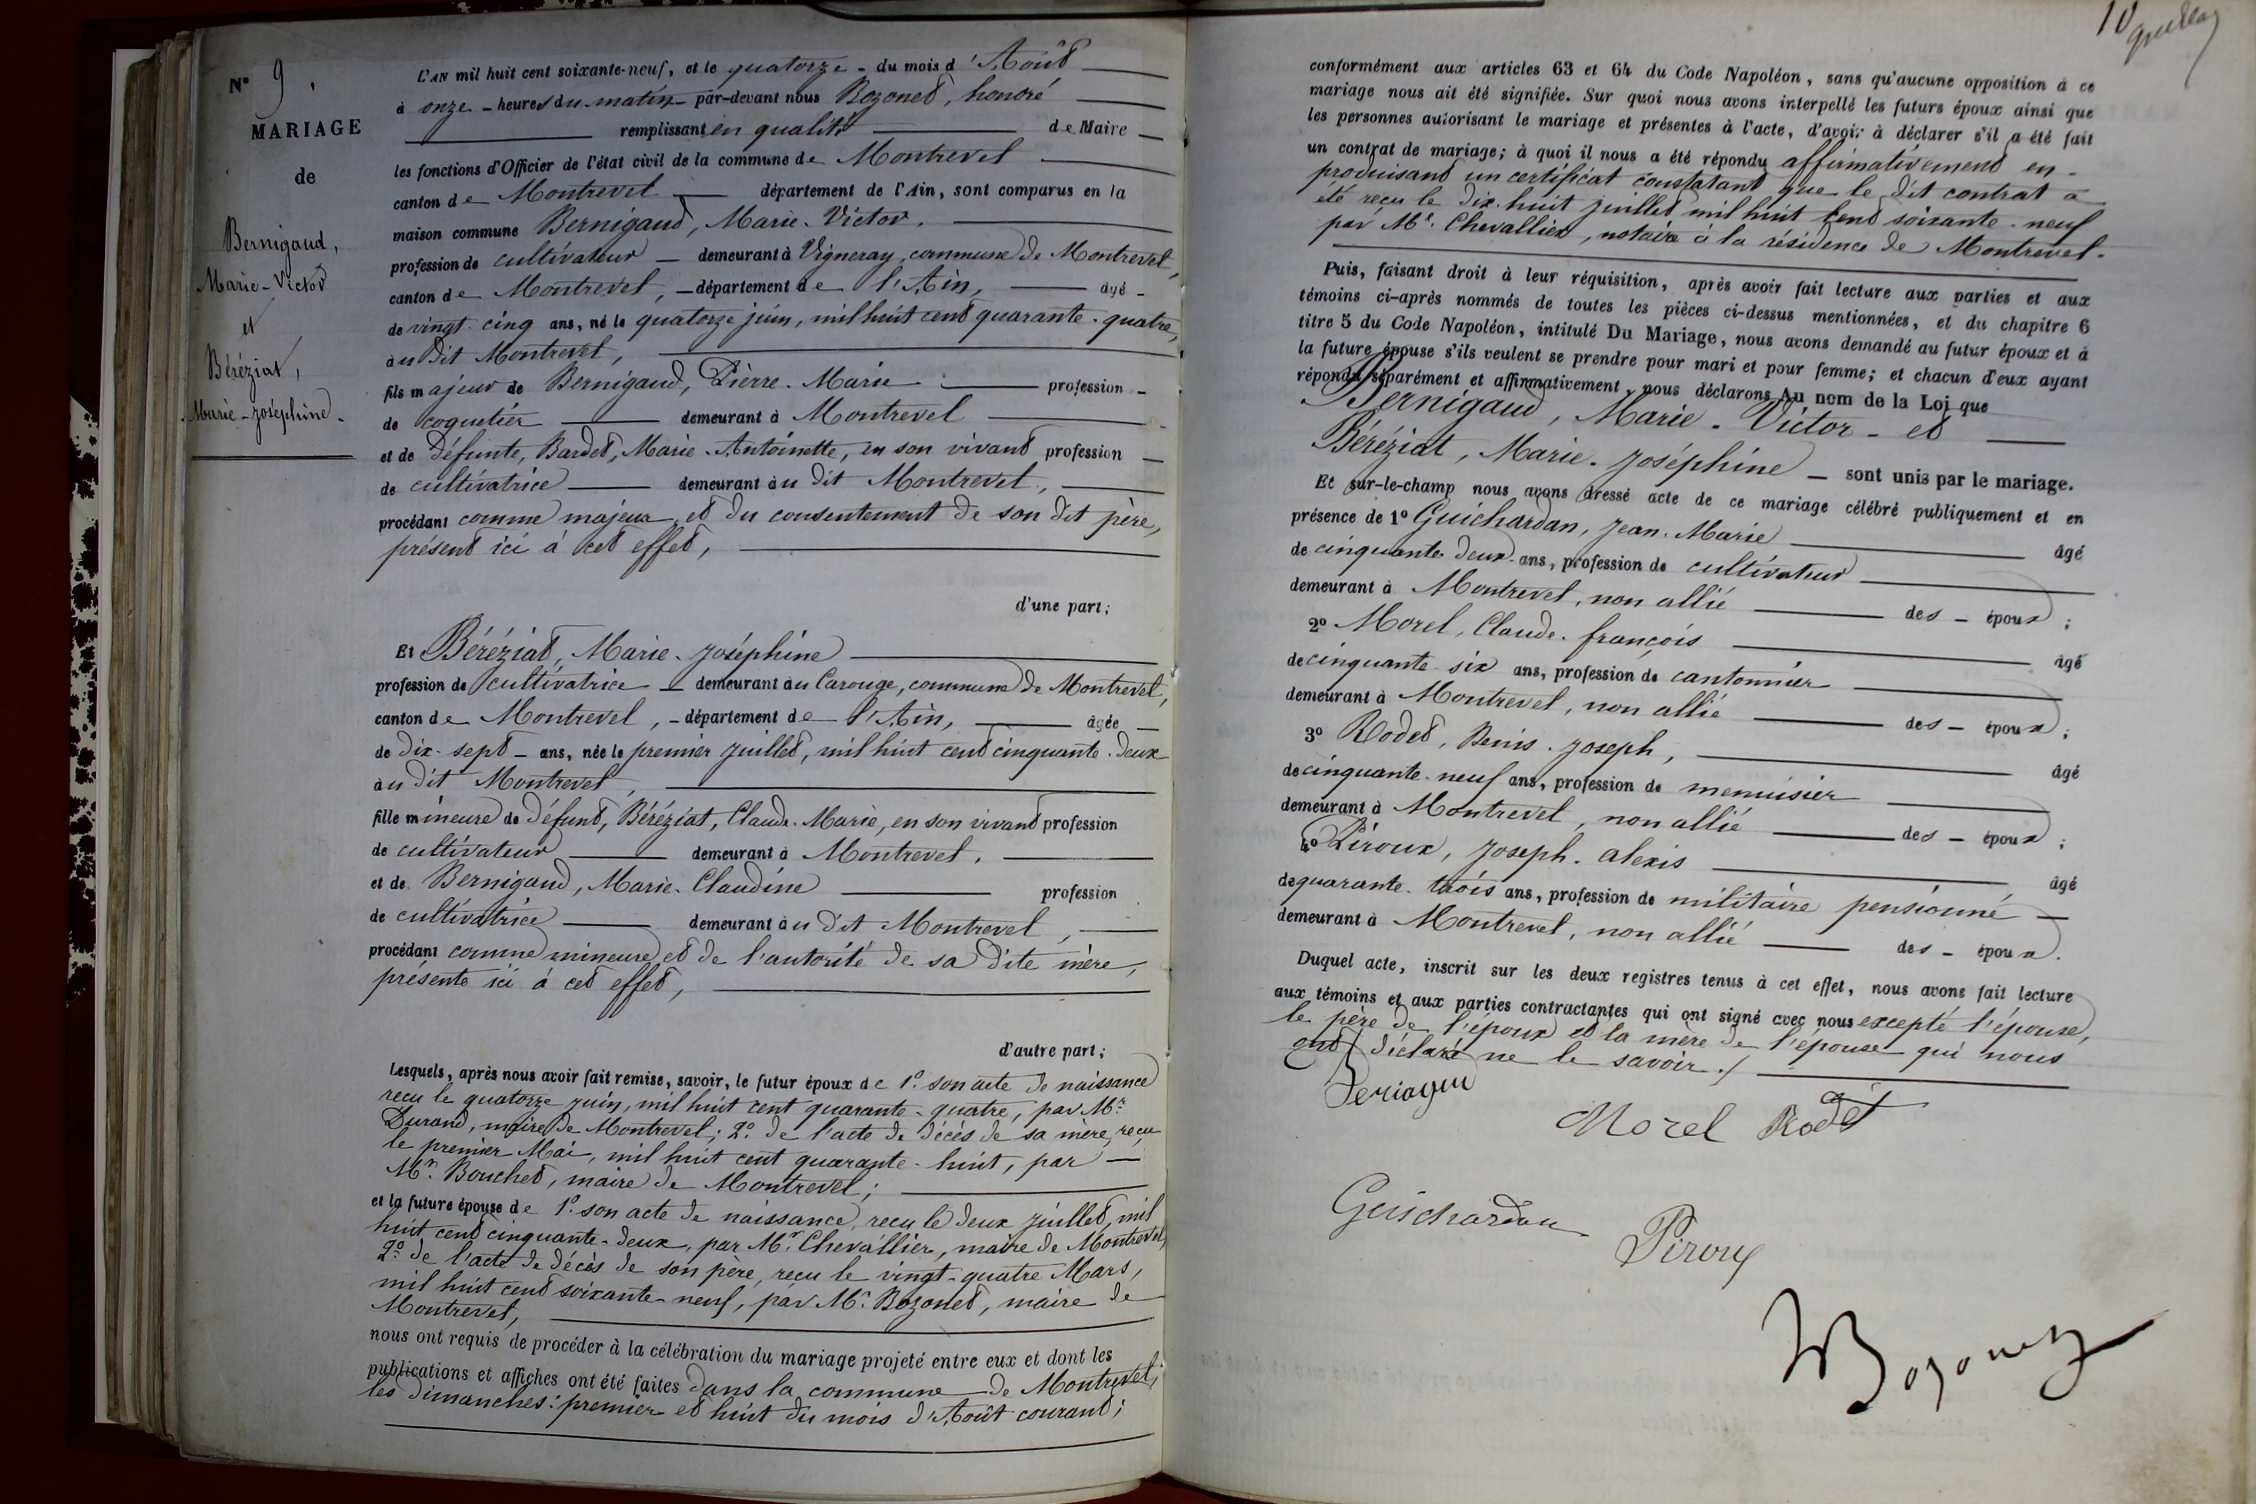 N° 9.
MARIAGE
de
Bernigaud,
Marie-Victor
et
Béréziat,
Marie-Joséphine.
L'AN mil huit cent soixante-neuf, et le quatorze - du mois d'Août
à onze - heures du matin - par-devant nous Bozonet, honoré
remplissant en qualité de Maire
les fonctions d'Officier de l'état civil de la commune de Montrevel
canton de Montrevel département de l'Ain, sont comparus en la
maison commune Bernigaud, Marie-Victor.
profession de cultivateur - demeurant à Vigneray, commune de Montrevel,
canton de Montrevel, - département de l'Ain, âgé -
de vingt-cinq ans, né le quatorze juin, mil huit cent quarante-quatre,
au dit Montrevel,
fils majeur de Bernigaud, Pierre-Marie profession -
de coquetier demeurant à Montrevel
et de défunte, Bardet, Marie-Antoinette, en son vivant profession -
de cultivatrice demeurant au dit Montrevel,
procédant comme majeur et du consentement de son dit père,
présent ici à cet effet,
d'une part;
Et Béréziat, Marie-Joséphine
profession de cultivatrice - demeurant au Carouge, commune de Montrevel,
canton de Montrevel, - département de l'Ain, âgée -
de dix-sept - ans, née le premier juillet, mil huit cent cinquante-deux
au dit Montrevel,
fille mineure de défunt, Béréziat, Claude-Marie, en son vivant profession
de cultivateur demeurant à Montrevel.
et de Bernigaud, Marie-Claudine profession
de cultivatrice demeurant au dit Montrevel,
procédant comme mineure et de l'autorité de sa dite mère,
présente ici à cet effet,
d'autre part;
Lesquels, après nous avoir fait remise, savoir, le futur époux de 1°. son acte de naissance
reçu le quatorze juin, mil huit cent quarante-quatre, par Mr.
Durand, maire de Montrevel; 2°. de l'acte de décès de sa mère, reçu
le premier Mai, mil huit cent quarante-huit, par -
Mr. Bouchet, maire de Montrevel;
et la future épouse de 1°. son acte de naissance, reçu le deux juillet, mil
huit cent cinquante-deux, par Mr. Chevallier, maire de Montrevel,
2°. de l'acte de décès de son père, reçu le vingt-quatre Mars,
mil huit cent soixante-neuf, par Mr. Bozonet, maire de
Montrevel,
nous ont requis de procéder à la célébration du mariage projeté entre eux et dont les
publications et affiches ont été faites dans la commune de Montrevel,
les dimanches: premier et huit du mois d'Août courant;
10
conformément aux articles 63 et 64 du Code Napoléon, sans qu'aucune opposition à ce
mariage nous ait été signifiée. Sur quoi nous avons interpellé les futurs époux ainsi que
les personnes autorisant le mariage et présentes à l'acte, d'avoir à déclarer s'il a été fait
un contrat de mariage; à quoi il nous a été répondu affirmativement en -
produisant un certificat constatant que le dit contrat a
été reçu le dix-huit juillet mil huit cent soixante-neuf
par Me. Chevallier, notaire à la résidence de Montrevel.
Puis, faisant droit à leur réquisition, après avoir fait lecture aux parties et aux
témoins ci-après nommés de toutes les pièces ci-dessus mentionnées, et du chapitre 6
titre 5 du Code Napoléon, intitulé Du Mariage, nous avons demandé au futur époux et à
la future épouse s'ils veulent se prendre pour mari et pour femme; et chacun d'eux ayant
répondu séparément et affirmativement, nous déclarons Au nom de la Loi que
Bernigaud, Marie-Victor - et
Béréziat, Marie-Joséphine - sont unis par le mariage.
Et sur-le-champ nous avons dressé acte de ce mariage célébré publiquement et en
présence de 1° Guichardan, Jean-Marie âgé
de cinquante-deux ans, profession de cultivateur
demeurant à Montrevel, non allié des - époux;
2° Morel, Claude-françois âgé
de cinquante-six ans, profession de cantonnier
demeurant à Montrevel, non allié des - époux;
3° Rodet, Denis-Joseph, âgé
de cinquante-neuf ans, profession de menuisier
demeurant à Montrevel, non allié des - époux;
4° Piroux, Joseph-alexis âgé
de quarante-trois ans, profession de militaire pensionné -
demeurant à Montrevel, non allié des - époux.
Duquel acte, inscrit sur les deux registres tenus à cet effet, nous avons fait lecture
aux témoins et aux parties contractantes qui ont signé avec nous excepté l'épouse,
le père de l'époux et la mère de l'épouse qui nous
ont déclaré ne le savoir ./
Morel Rodet
Guichardan
Piroux
Bozonet